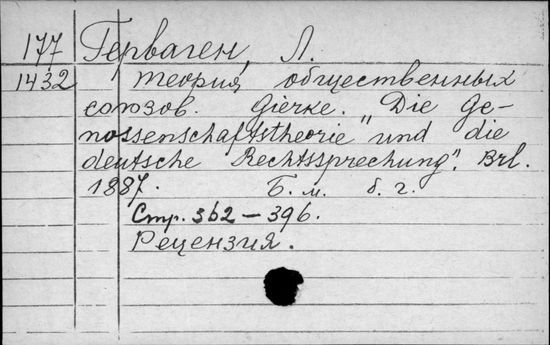 177 Герваген, Л.
1432 Теория общественных
союзов. Gierke. „Die Ge-
nossenschaftstheorie" und die
deutsche Rechtssprechung". Brl.
1887. Б. м. б. г.
Стр. 362-396.
Рецензия.